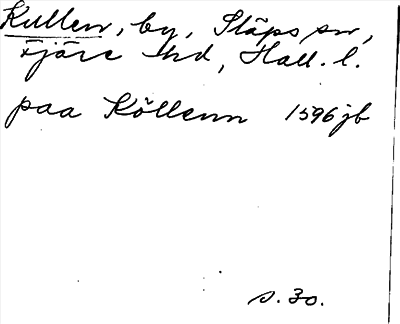 Kullen, by, Släps sn,
Fjäre hd, Hall. l.
paa Köllenn 1596 jb
s. 30.